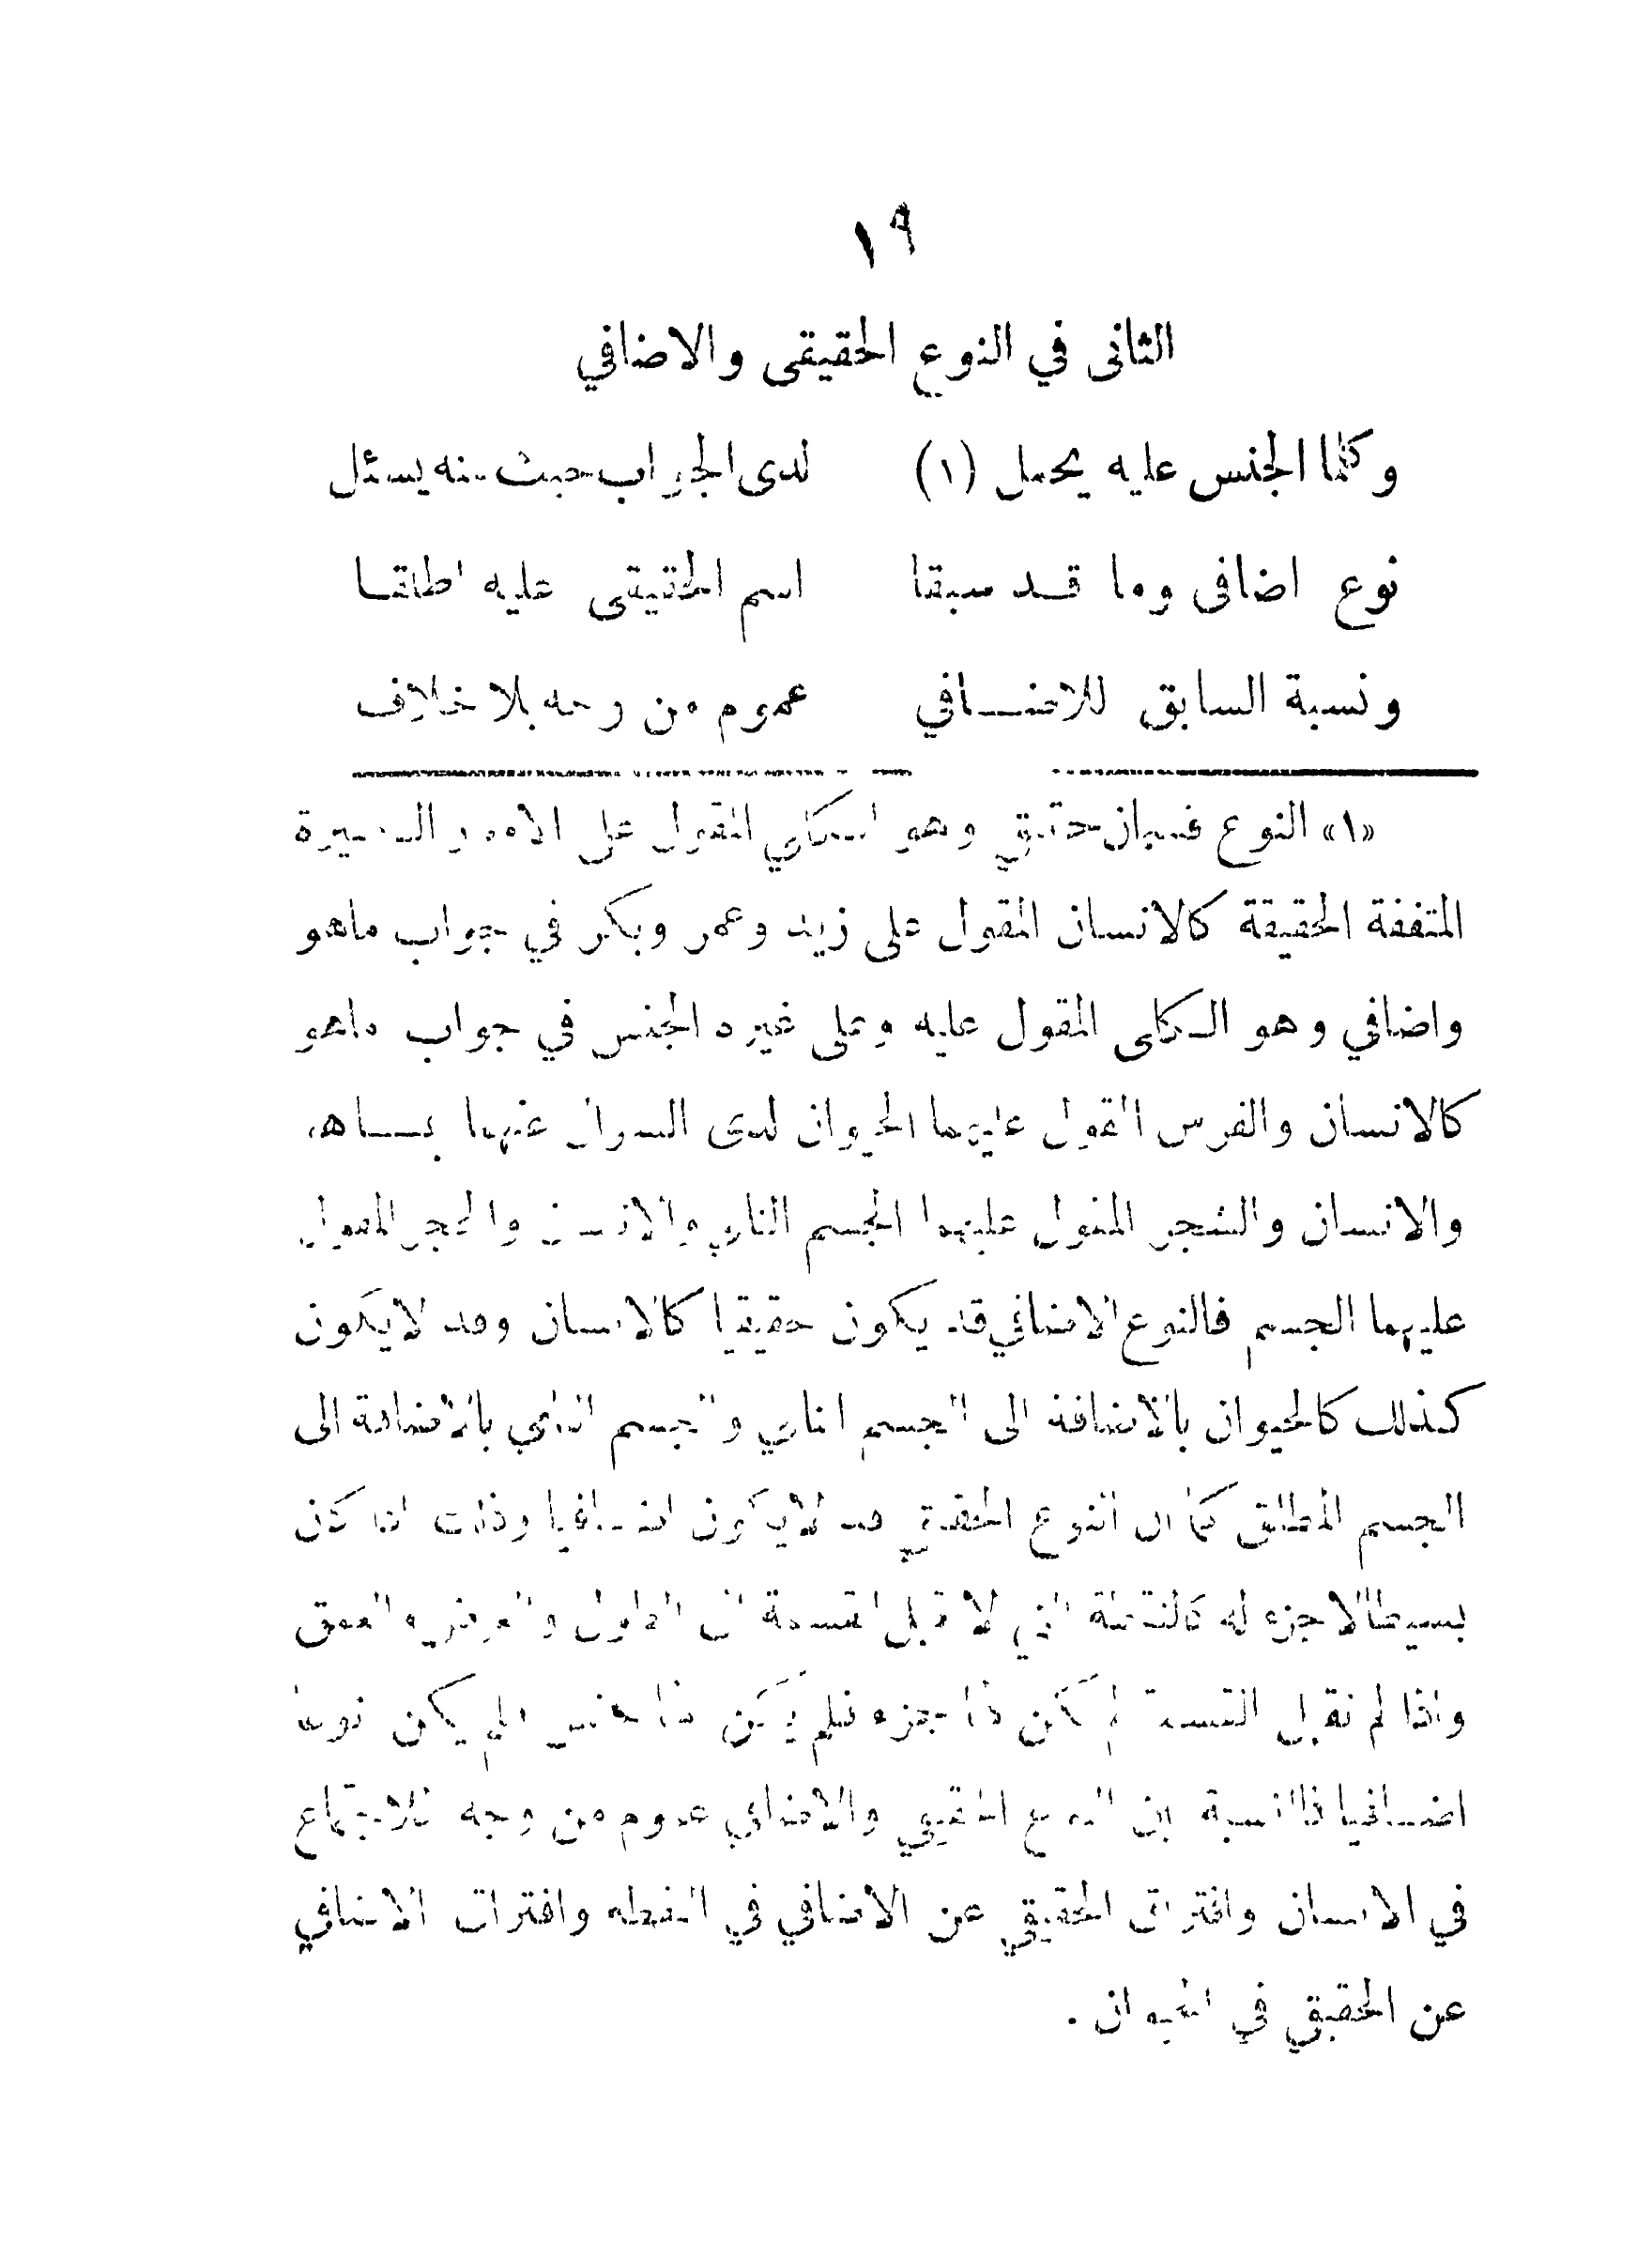 ١٩
الثانى في النوع الحقيقى والاضافي
وكلما الجنس عليه يحمل (١) لدى الجواب حيث منه يسئل
نوع اضافى وما قد سبقا اسم الحقيقى عليه اطلقا
ونسبة السابق للاضافي عموم من وجه بلا خلاف
«١» النوع قسمان حقيقي وهو الكلي المقول على الامور الكثيرة
المتفقة الحقيقة كالانسان المقول على زيد وعمر وبكر في جواب ماهو
واضافي وهو الكلى المقول عليه وعلى غيره الجنس في جواب ماهو
كالانسان والفرس المقول عليهما الحيوان لدى السوال عنهما بماهو
والانسان والشجر المقول عليهما الجسم النامي والانسان والحجر المقول
عليهما الجسم فالنوع الاضافي قد يكون حقيقيا كالانسان وقد لايكون
كذلك كالحيوان بالاضافة الى الجسم النامي والجسم النامي بالاضافة الى
الجسم المطلق كما ان النوع الحقيقي قد لايكون اضافيا وذلك اذا كان
بسيطا لا جزء له كالنقطة التي لا تقبل القسمة في الطول والعرض والعمق
واذا لم تقبل القسمة لم تكن ذا جزء فلم يكن ذا جنس فلم يكن نوعا
اضافيا فالنسبة بين النوع الحقيقي والاضافي عموم من وجه للاجتماع
في الانسان وافتراق الحقيقي عن الاضافي في النقطه وافتراق الاضافي
عن الحقيقي في الحيوان .